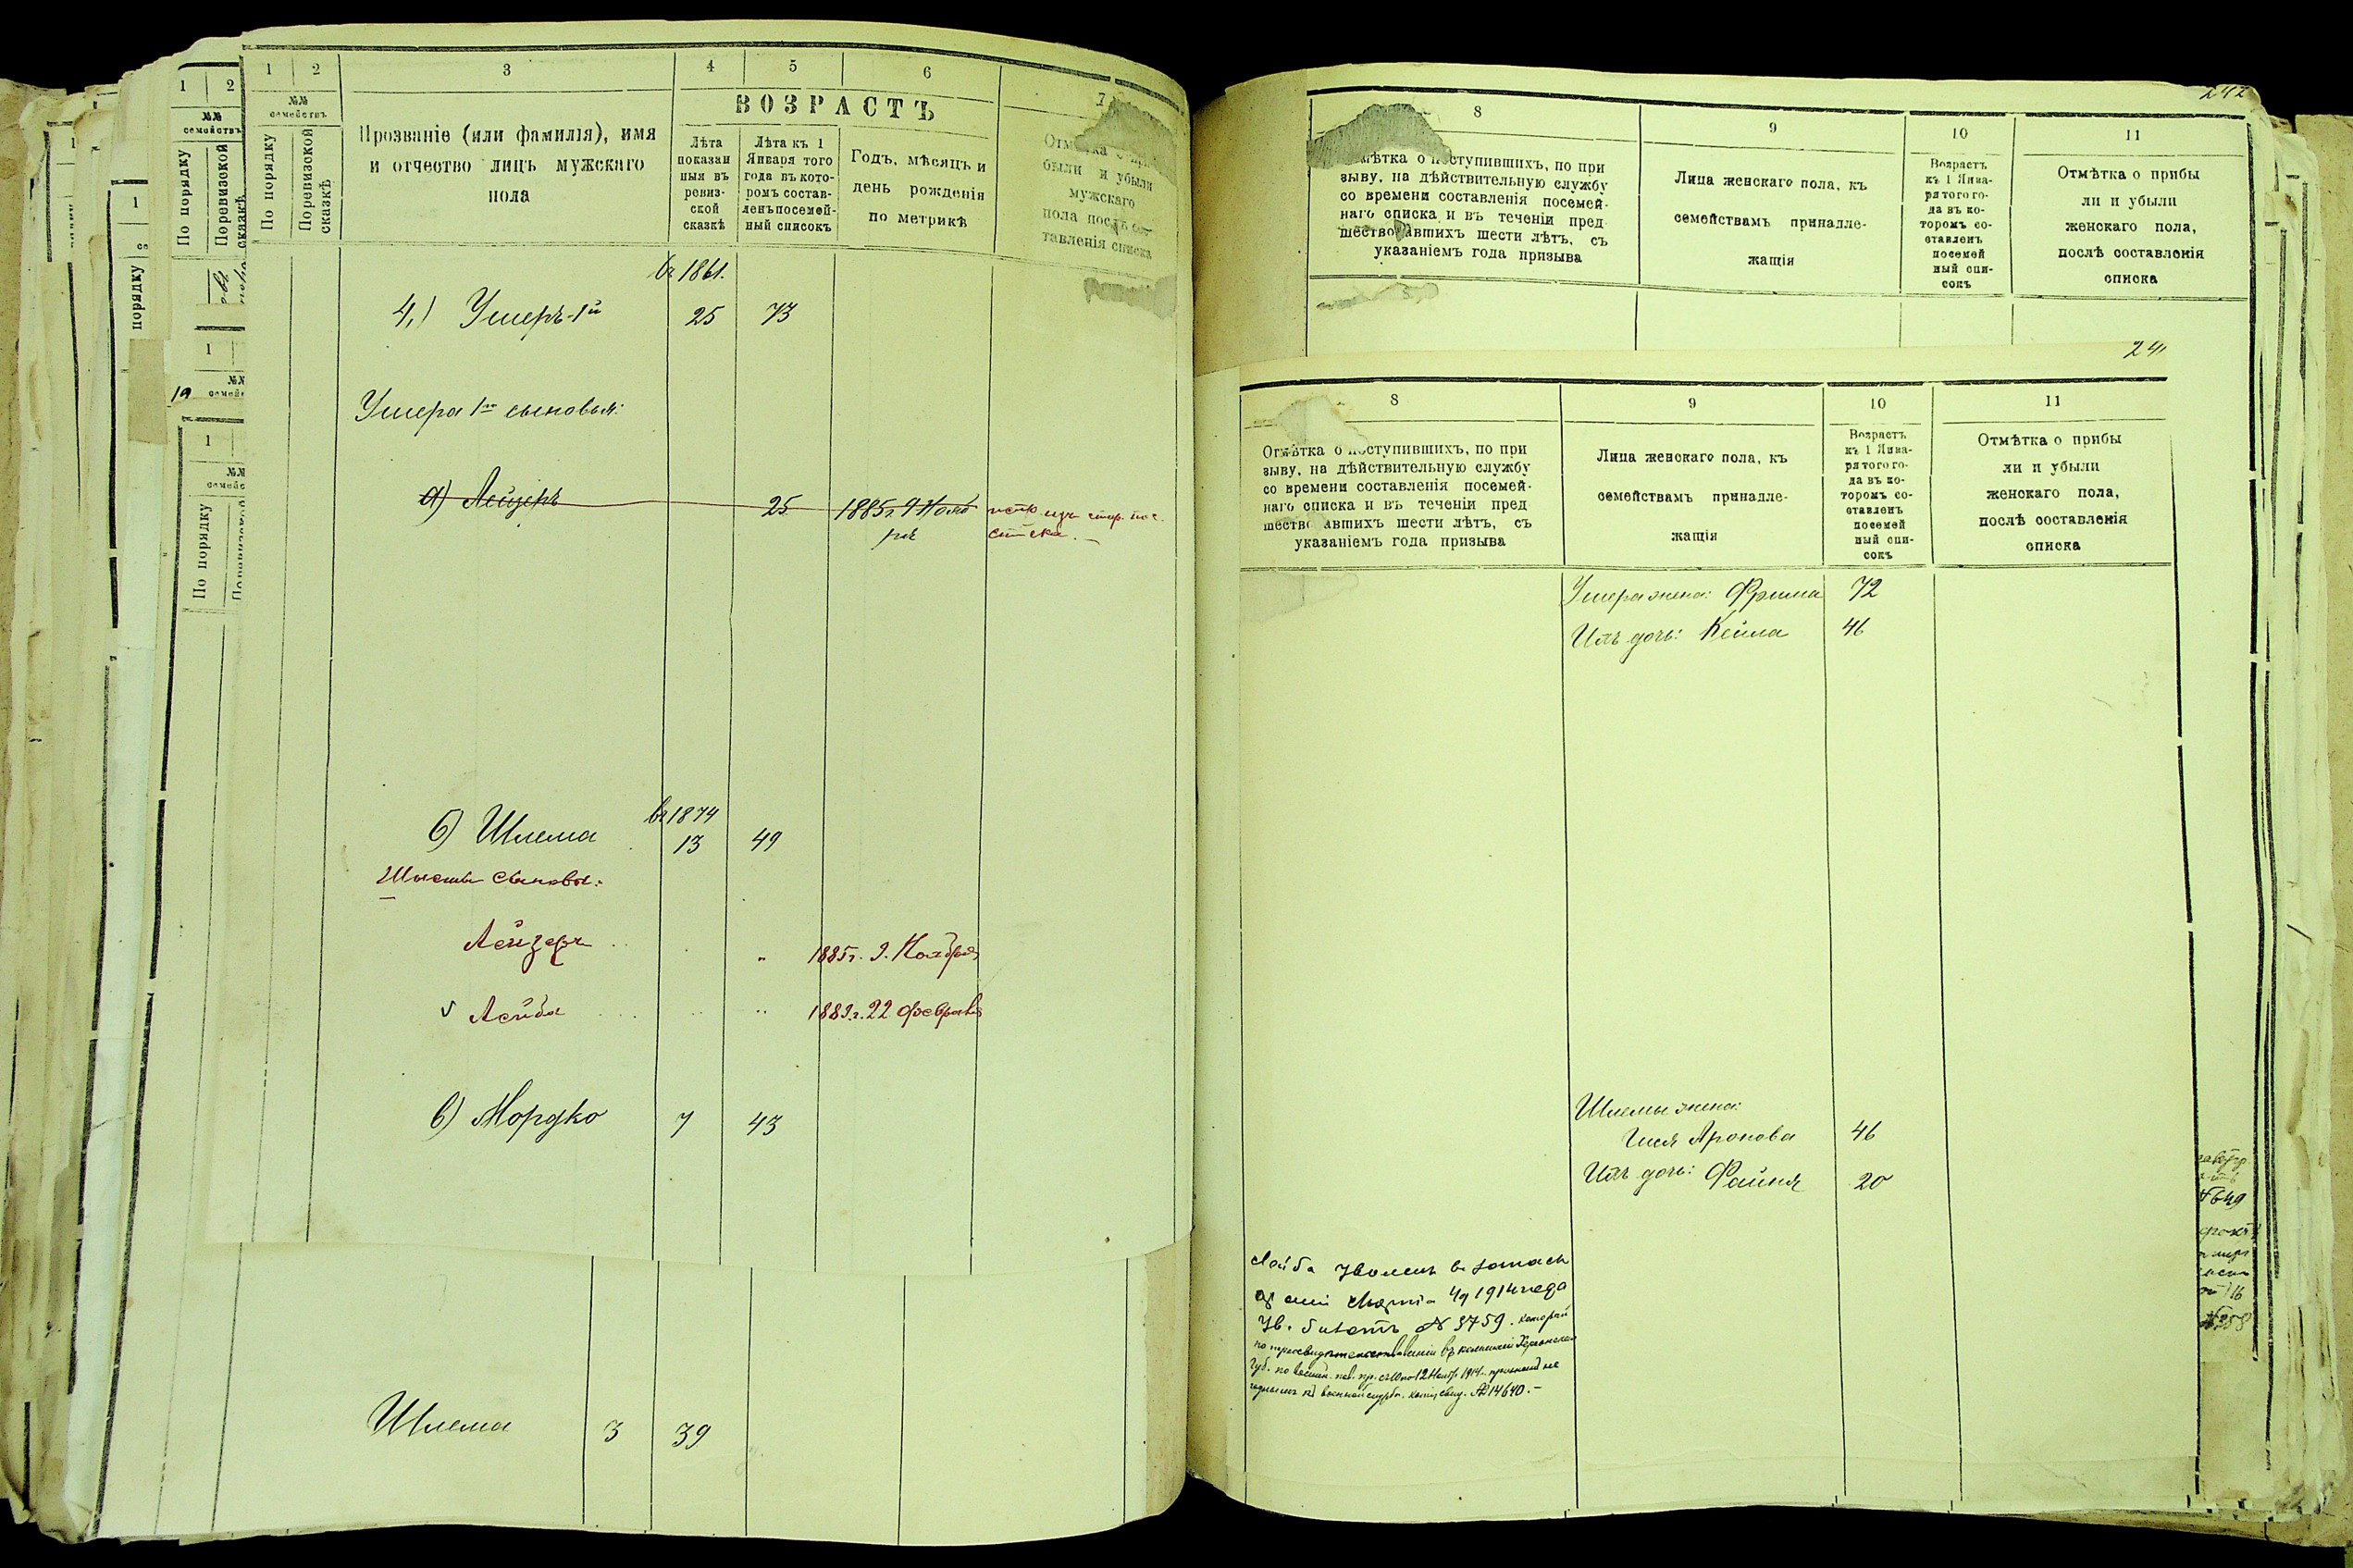 1 2 3 4 5 6
№№ семействъ
По порядку
Поревизской сказкѣ
Прозваніе (или фамилія), имя
и отчество лицъ мужскаго
пола
ВОЗРАСТЪ
Лѣта
показан
ныя въ
ревиз-
ской
сказкѣ
Лѣта къ 1
Января того
года въ кото-
ромъ состав-
ленъ посемей-
ный списокъ
Годъ, мѣсяцъ и
день рожденія
по метрикѣ
7
были и убыли
мужскаго
пола послѣ сос-
тавленія списка
въ 1861.
4,) Умеръ-1й 25 73
Умера 1го сыновья:
а) Лейзеръ 25 1885 г. 9 Нояб
ря
списка.
въ 1874
б) Шлема 13 49
Шлемы сыновья:
Лейзеръ 1885 г. 9. Ноября
√ Лейба 1889 г. 22 февраля
в) Мордко 7 43
Шлема 3 39
242
8 9 10 11
Отмѣтка о поступившихъ, по при
зыву, на дѣйствительную службу
со времени составленія посемей-
наго списка и въ теченіи пред
шествовавшихъ шести лѣтъ, съ
указаніемъ года призыва
Лица женскаго пола, къ
семействамъ принадле-
жащія
Возрастъ
къ 1 Янва-
ря того го-
да въ ко-
торомъ со-
ставленъ
посемей
ный спи-
сокъ
Отмѣтка о прибы
ли и убыли
женскаго пола,
послѣ составленія
списка
241
8 9 10 11
Отмѣтка о поступившихъ, по при
зыву, на дѣйствительную службу
со времени составленія посемей-
наго списка и въ теченіи пред
шествовавшихъ шести лѣтъ, съ
указаніемъ года призыва
Лица женскаго пола, къ
семействамъ принадле-
жащія
Возрастъ
къ 1 Янва-
ря того го-
да въ ко-
торомъ со-
ставленъ
посемей
ный спи-
сокъ
Отмѣтка о прибы
ли и убыли
женскаго пола,
послѣ составленія
списка
Умера жена: Фрима 72
Ихъ дочь: Кейла 46
Шлемы жена:
Гися Аронова 46
Ихъ дочь: Файня 20
Лейба уволенъ въ запасъ
арміи Марта 4 д 1914 года
Ув. билетъ № 3759. который
по переосвидѣтельствованіи въ Херсонской
Губ. по воинск. пов. пр. 12 Нояб. 1914 г. признанъ не
годнымъ къ военной службѣ. свид. № 14640.-
№ 649
№ 258